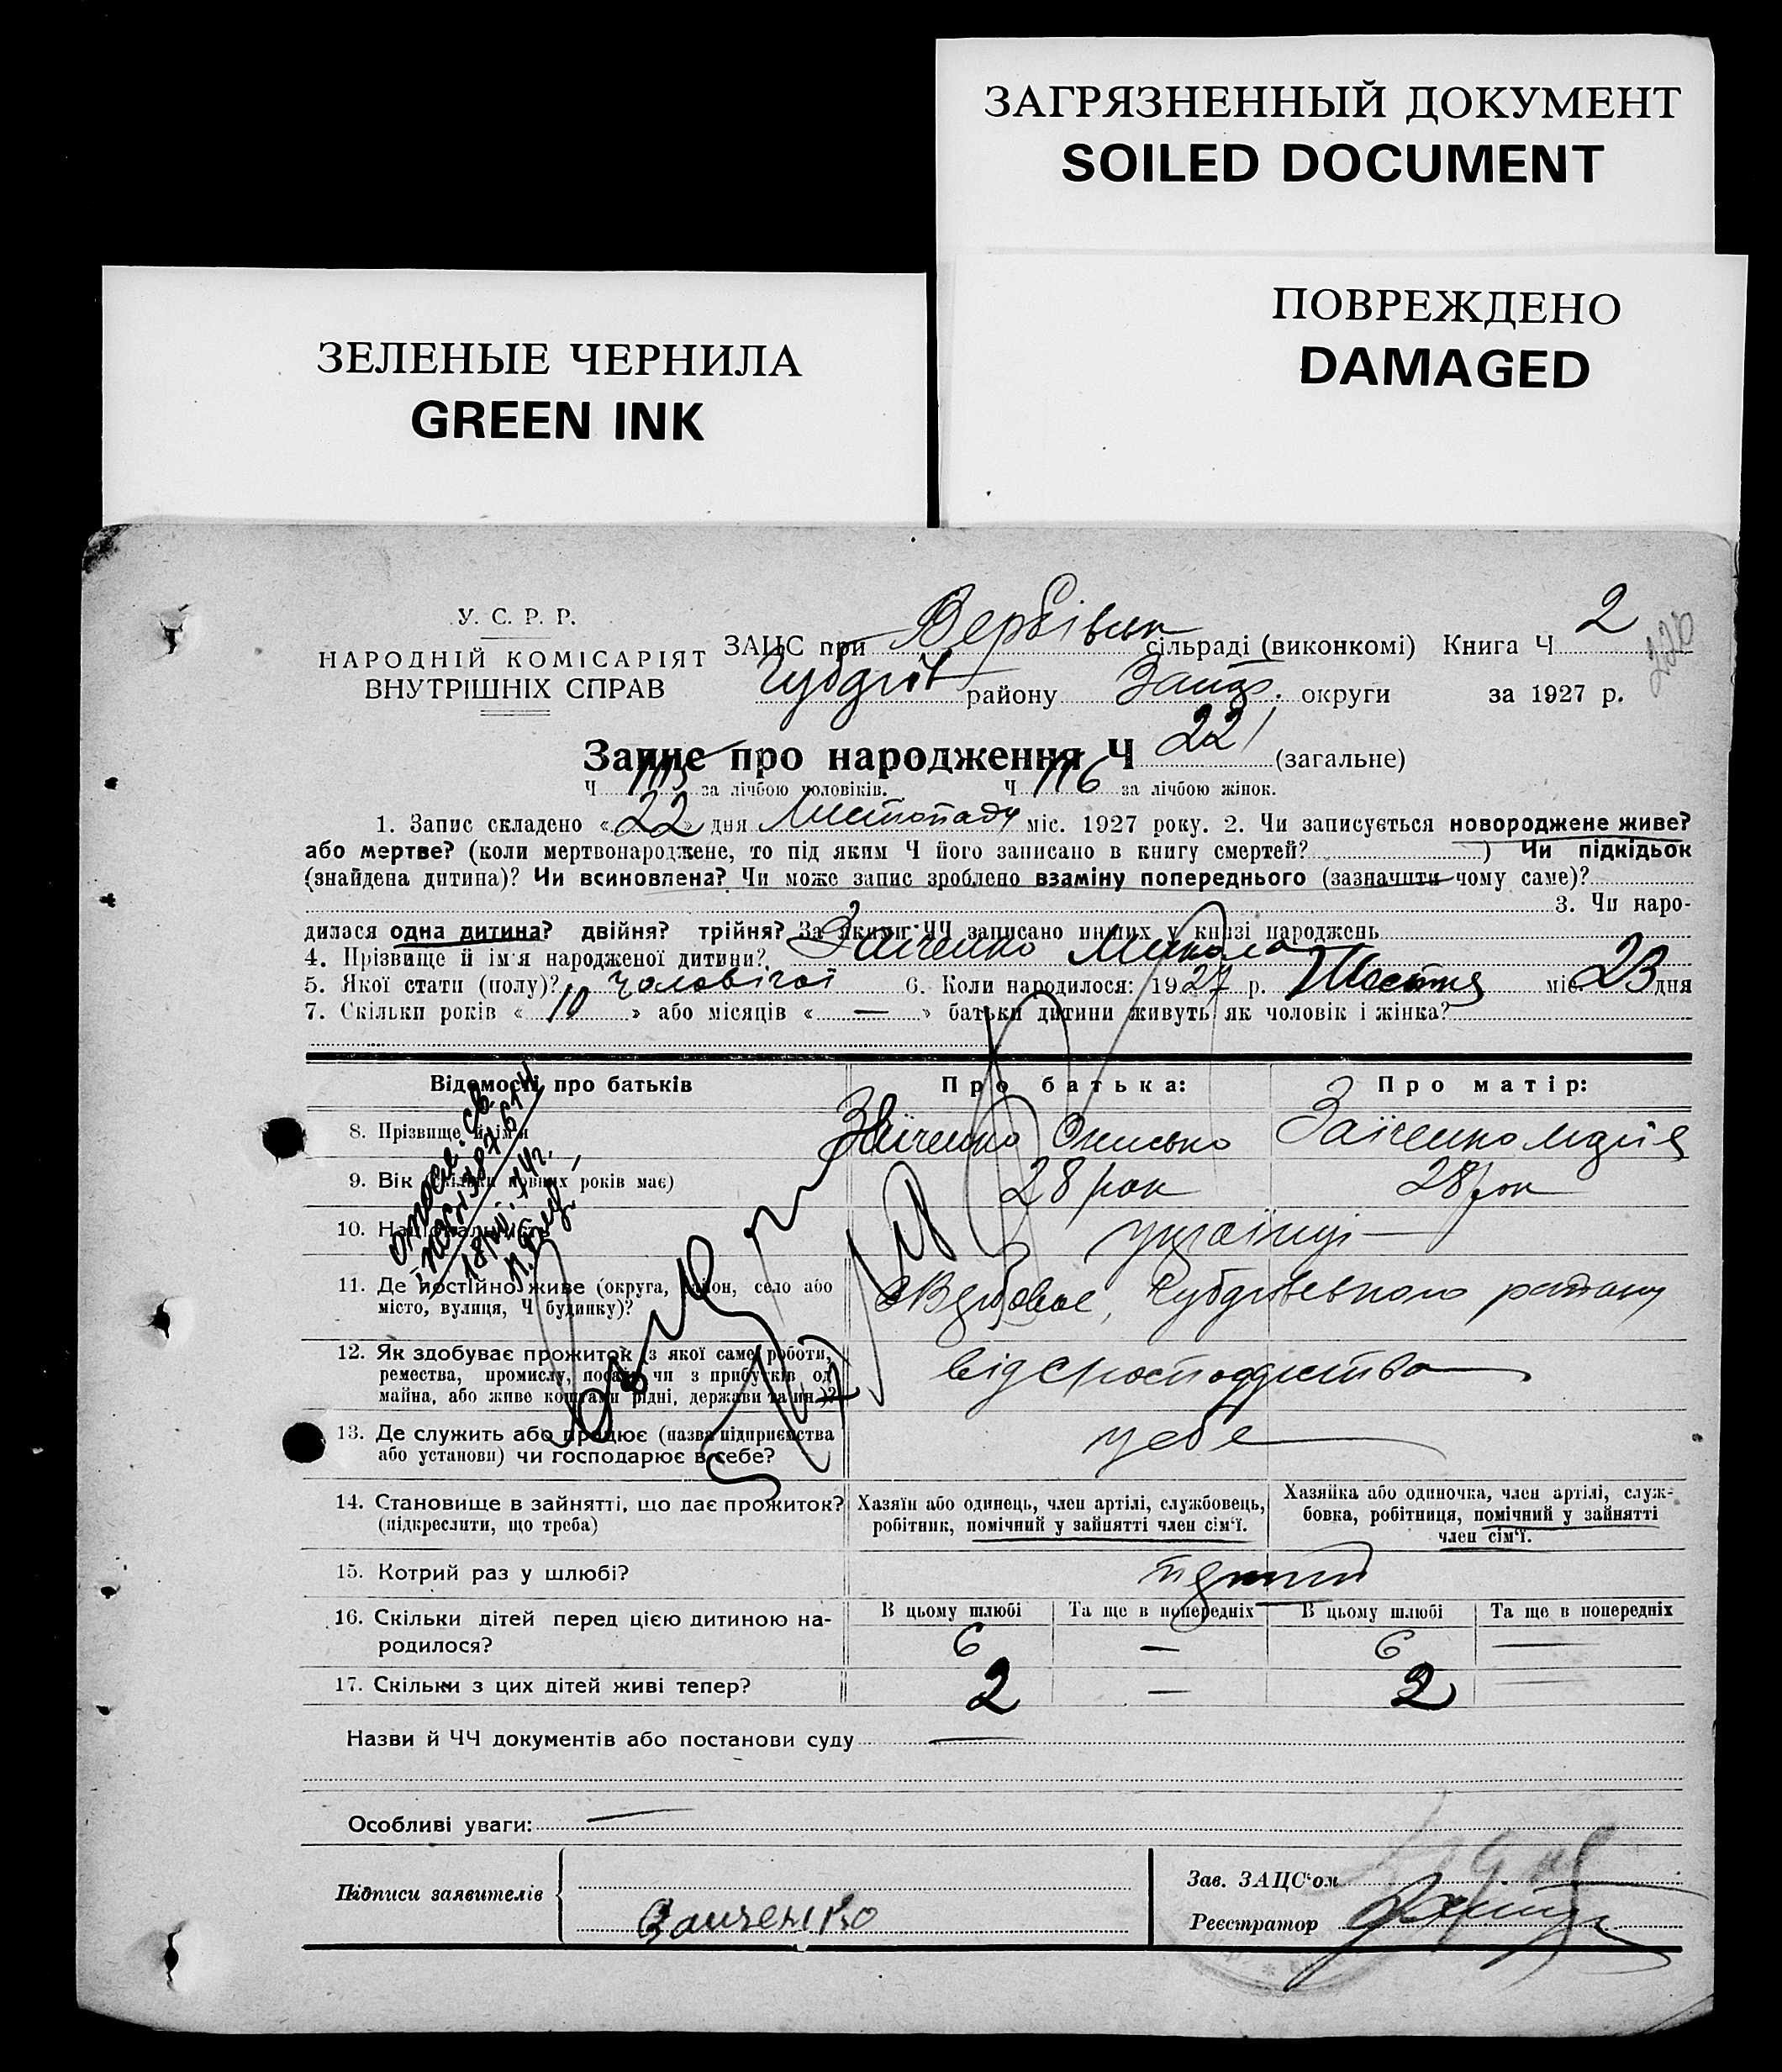 ЗАГРЯЗНЕННЫЙ ДОКУМЕНТ
SOILED DOCUMENT
ПОВРЕЖДЕНО
DAMAGED
ЗЕЛЕНЫЕ ЧЕРНИЛА
GREEN INK
У. С. Р. Р.
НАРОДНІЙ КОМІСАРІЯТ
ВНУТРІШНІХ СПРАВ
ЗАЦС при Вербівськ сільраді (виконкомі) Книга Ч 2
району Запор. округи за 1927 р.
Запис про народження Ч 221 (загальне)
Ч 105 за лічбою чоловіків. Ч 116 за лічбою жінок.
1. Запис складено «22» дня Листопаду міс. 1927 року. 2. Чи записується новороджене живе?
або мертве? (коли мертвонароджене, то під яким Ч його записано в книгу смертей? ) Чи підкідьок
(знайдена дитина)? Чи всиновлена? Чи може запис зроблено взаміну попереднього (зазначити чому саме)?
3. Чи наро-
дилася одна дитина? двійня? трійня? За якими ЧЧ записано инших у книзі народжень
4. Прізвище й ім'я народженої дитини? Заїченко Микола
5. Якої стати (полу)? Чоловічої 6. Коли народилося: 1927 р. міс. 23 дня
7. Скільки років « 10 » або місяців « — » батьки дитини живуть як чоловік і жінка?
Відомості про батьків Про батька: Про матір:
8. Прізвище й ім'я Заїченко Онисько Заїченко Марія
9. Вік (скільки повних років має) 28 рок 28 рок
10. Національність українці
11. Де постійно живе (округа, район, село або
місто, вулиця, Ч будинку)?
12. Як здобуває прожиток (з якої саме роботи,
ремества, промислу, посади чи з прибутків од
майна, або живе коштами рідні, держави та ин.)?
13. Де служить або працює (назва підприємства
або установи) чи господарює в себе? у себе
14. Становище в зайнятті, що дає прожиток?
(підкреслити, що треба)
Хазяїн або одинець, член артілі, службовець,
робітник, помічний у зайнятті член сім'ї.
Хазяйка або одиночка, член артілі, служ-
бовка, робітниця, помічний у зайнятті
член сім'ї.
15. Котрий раз у шлюбі? перший
16. Скільки дітей перед цією дитиною на-
родилося?
В цьому шлюбі Та ще в попередніх В цьому шлюбі Та ще в попередніх
6 — 6 —
17. Скільки з цих дітей живі тепер? 2 — 2 —
Назви й ЧЧ документів або постанови суду —
Особливі уваги: —
Підписи заявителів Заиченко
Зав. ЗАЦС'ом
Реєстратор